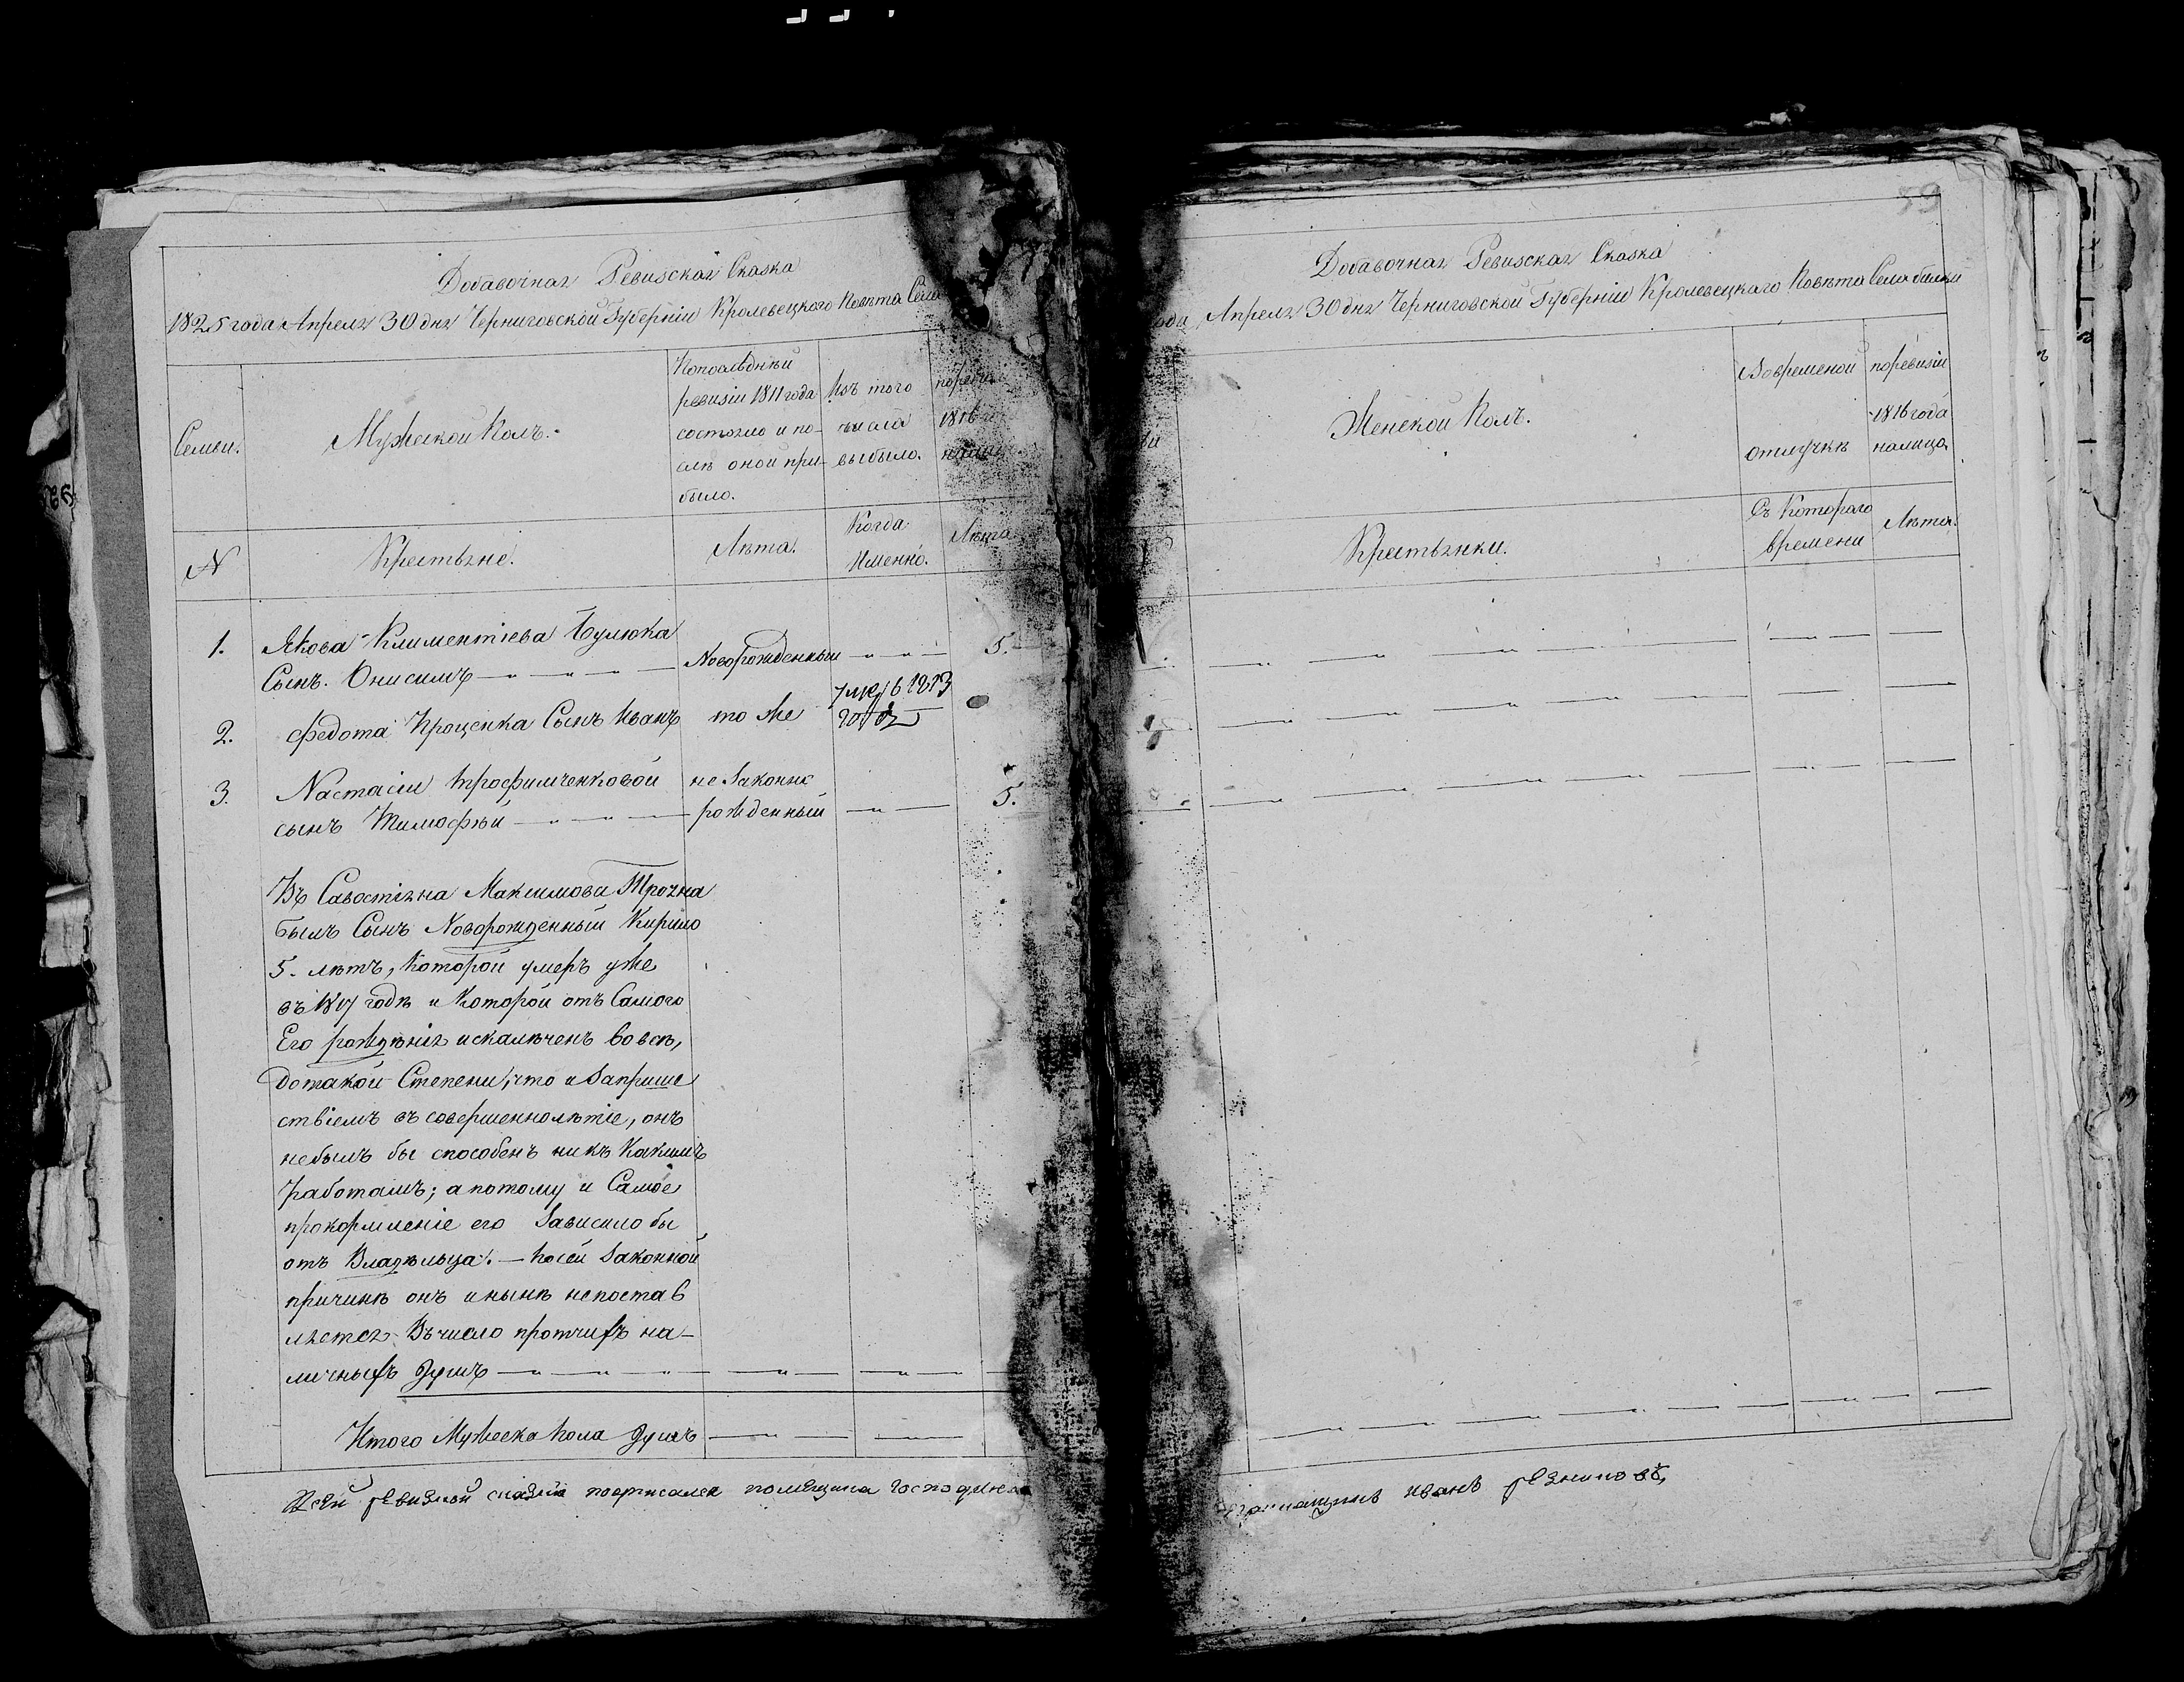 Добавочная Ревизская Сказка
1825 года Апреля 30 дня Черниговской Губерніи Кролевецкого Повѣта Села
Семьи.
Мужеской Полъ.
Попослѣднѣй
ревизіи 1811 года
состояло и по-
слѣ оной при-
было.
Изъ того
числа
выбыло.
1816
N
Крестьяне.
Лѣта.
Когда
Именно.
Лѣта
1. Якова Климентіева Булюка
Сынъ Онисимъ Новорожденный 5.
2. Федота Проценка Сынъ Иванъ то же
3. Настасіи Трофимченковой не Законно
сынъ Тимофѣй рожденный 5.
Въ Савостіяна Максимова
былъ Сынъ Новорожденный Кирило
5. лѣтъ, Которой умеръ уже
въ годѣ и Которой отъ Самого
Его рождѣнія искалѣченъ вовсѣ,
дотакой Степени, что и Заприше
ствіемъ въ совершеннолѣтіе, онъ
небылъ бы способенъ никъ Какимъ
работамъ; а потому и Самое
прокормленіе его Зависило бы
отъ Владѣльца. — Посей Законной
причинѣ онъ и нынѣ непостав
ляется Въчисло протчихъ на-
личныхъ Душъ
Итого Мужеска Пола Душъ
59
Добавочная Ревизская Сказка
Апреля 30 дня Черниговской Губерніи Кролевецкого Повѣта Села
Женской Полъ.
Вовременой
отлучкѣ
поревизіи
1816 года
налицо
Крестьянки.
Съ Котораго
времени
Лѣта.
Иванъ